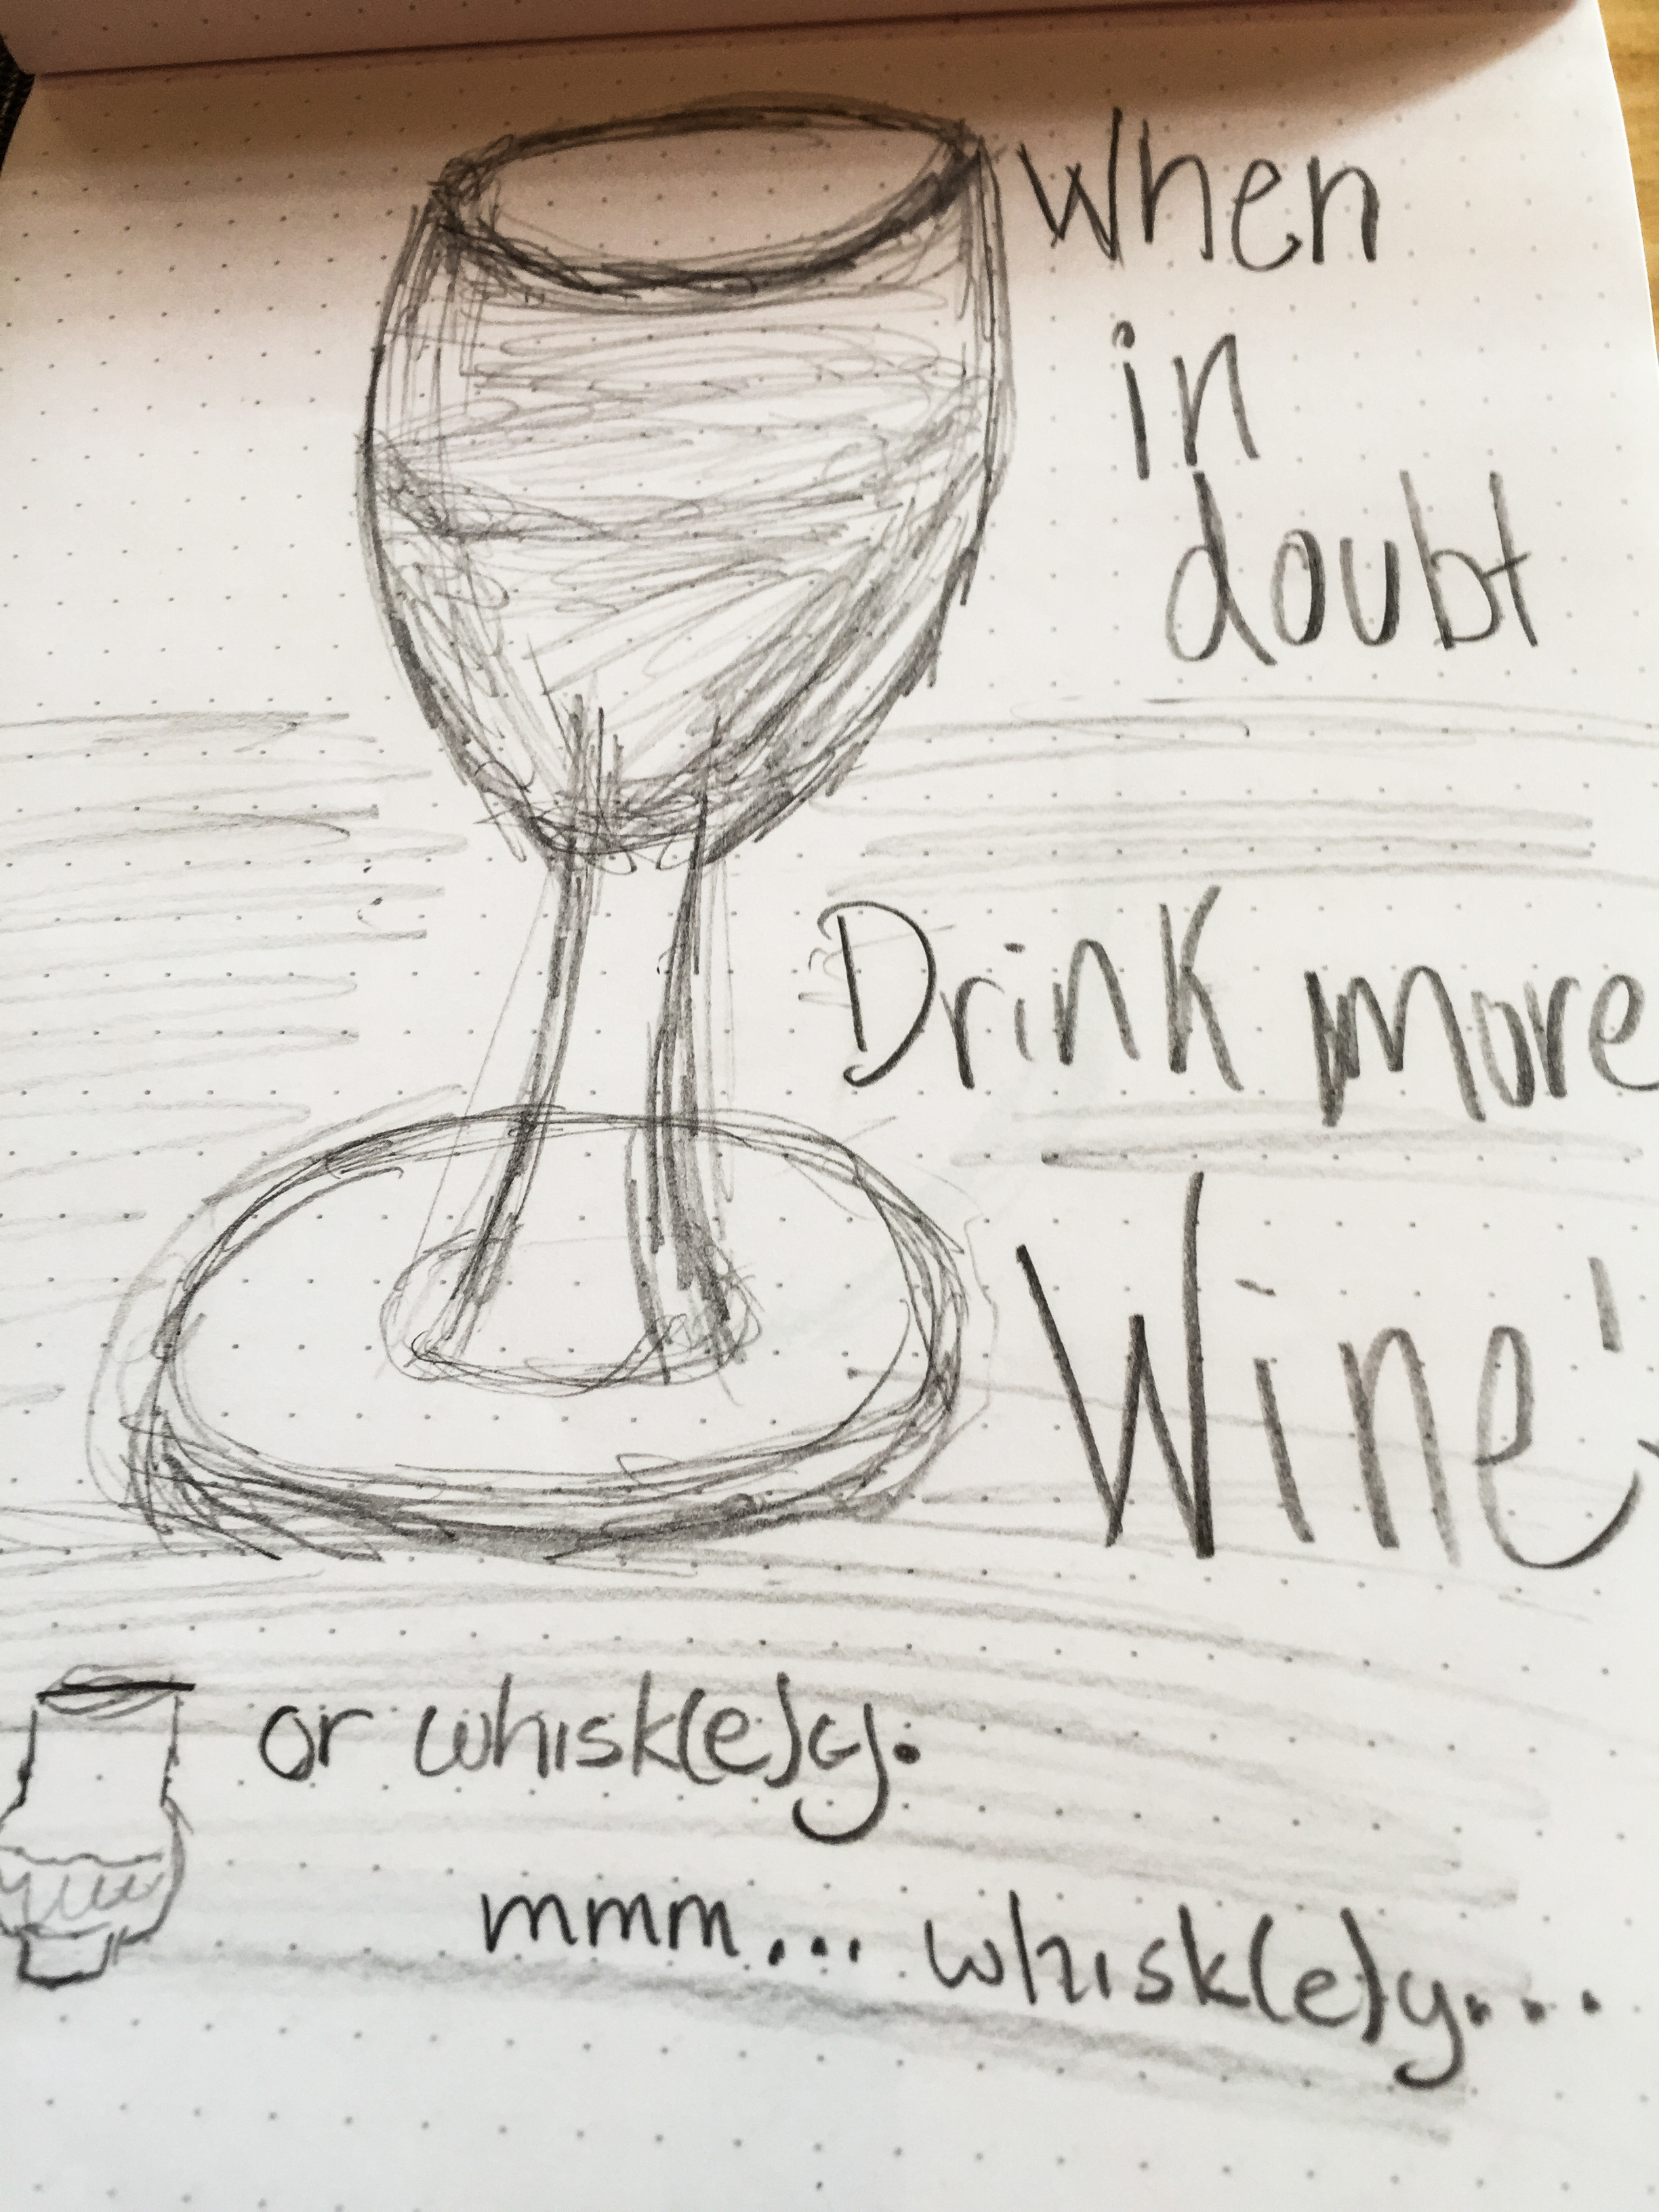 When
in
doubt
Drink more
Wine!
or whisk(e)y.
mmm... whisk(e)y...